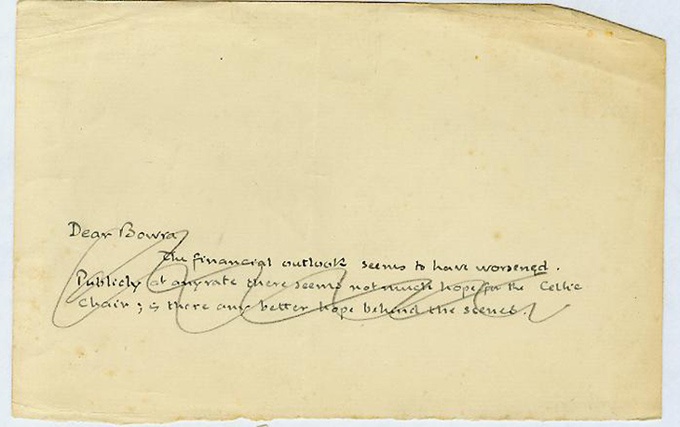 Dear Bowra
The financial outlook seems to have worsened.
Publicly at any rate there seems not much hope for the Celtic
Chair; is there any better hope behind the scenes.